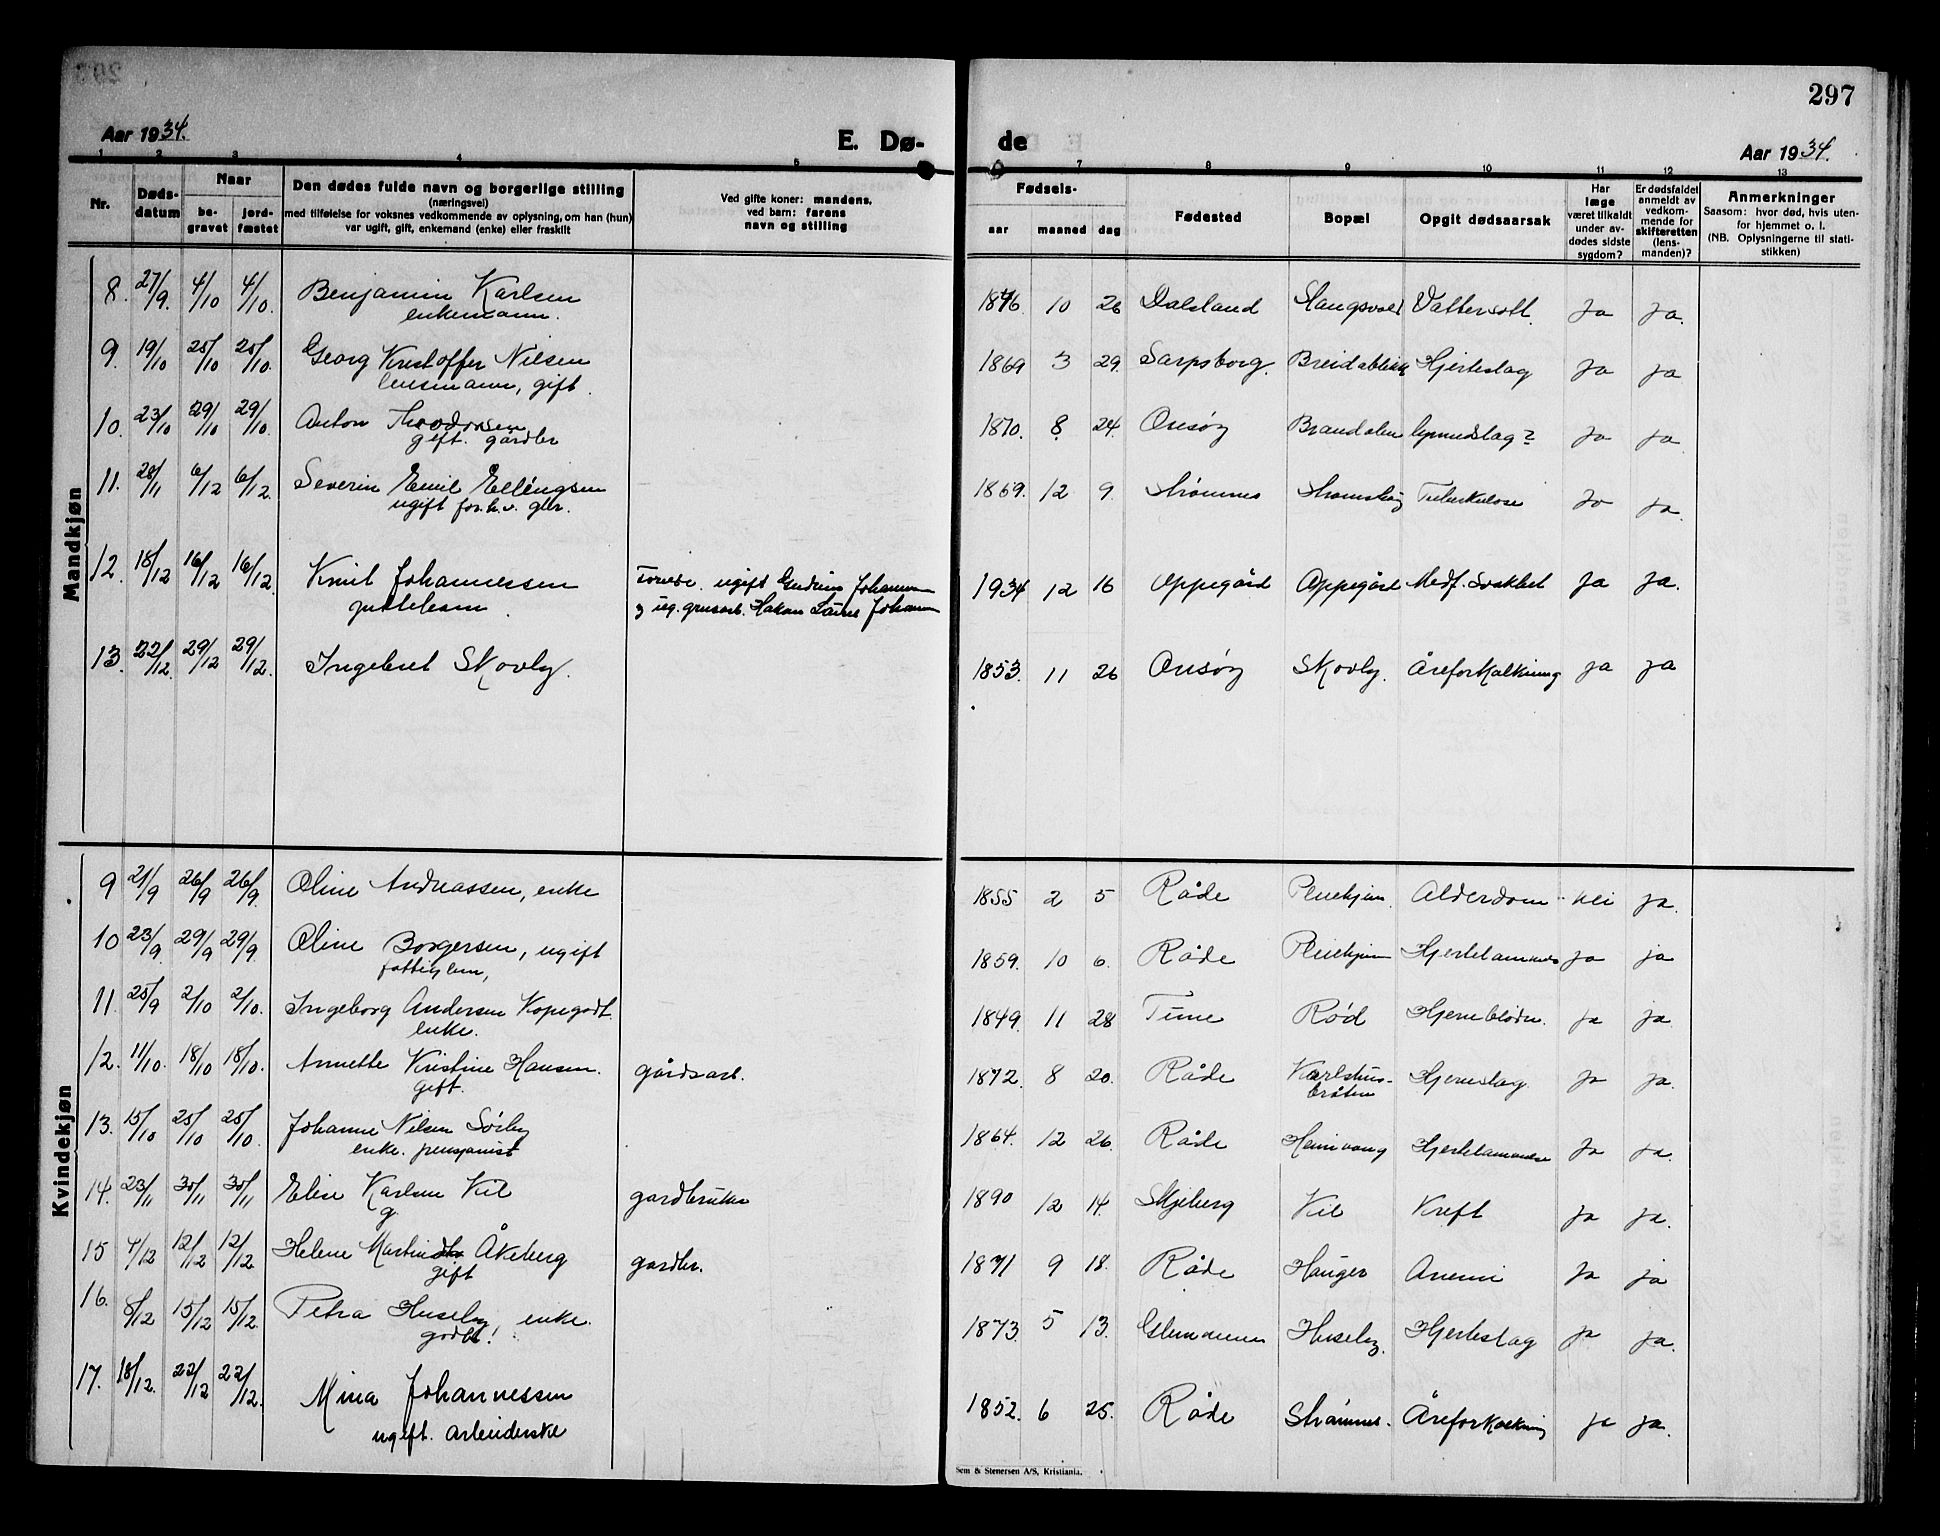 297
Aar 1934.
E. Dø-
de
Aar 1934.
1 2 3 4 5 6 7 8 9 10 11 12 13
Nr.
Døds-
datum
Naar
be-
gravet
jord-
fæstet
Den dødes fulde navn og borgerlige stilling
(næringsvei)
med tilføielse for voksnes vedkommende av oplysning, om han (hun)
var ugift, gift, enkemand (enke) eller fraskilt
Ved gifte koner: mandens,
ved barn: farens
navn og stilling
Fødsels-
aar maaned dag
Fødested
Bopæl
Opgit dødsaarsak
Har
læge
været tilkaldt
under av-
dødes sidste
sygdom?
Er dødsfaldet
anmeldt av
vedkom-
mende for
skifteretten
(lens-
manden)?
Anmerkninger
Saasom: hvor død, hvis uten-
for hjemmet o. l.
(NB. Oplysningerne til stati-
stikken)
Mandkjøn
8. 27/9. 4/10 4/10. Benjamin Karlsen 1846 10 26 Dalsland Haugsvold Vattersott. Ja Ja.
enkemann.
9. 19/10 25/10 25/10. Georg Kristoffer Nilsen 1869 3 29. Sarpsborg. Breidablikk Hjerteslag Ja Ja
lensmann, gift.
10. 23/10 29/10 29/10. Anton Theodorsen 1870. 8 24. Onsøy Brandalen Ja Ja
gift. gårdbr
11. 28/11 6/12 6/12. Severin Emil Ellingsen 1869. 12 9. Strømnes Tuberkulose Ja Ja.
ugift for.h.v. gbr.
12. 18/12 16/12 16/12. Knut Johannessen ugift Gudrun Johannsen 1934 12 16 Oppegård Oppegård Medf. Svakhet Ja Ja.
guttebarn. og ug. grusarb. Hakon Laurits Johannsen
13. 22/12. 29/12 29/12. Ingebret Skovly. 1853. 11 26 Onsøy Skovly. Åreforkalkning Ja Ja
Kvindekjøn
9 21/9 26/9 26/9. Oline Andreassen, enke 1855 2 5 Råde Pleiehjem Alderdom nei Ja.
10 23/9. 29/9 29/9. Oline Borgersen, ugift 1859. 10 6. Råde Pleiehjem Hjertelammelse Ja Ja
fattiglem,
11. 25/9 2/10 2/10. Ingeborg Andersen Kopegodt. 1849. 11 28 Tune Rød Hjerneblødn. Ja Ja.
enke.
12. 11/10. 18/10 18/10. Annette Kristine Hansen. gårdsarb. 1872. 8 20. Råde Karlshus- Hjerneslag Ja Ja.
gift. bråten
13. 15/10 25/10 25/10. Johanne Nilsen Sørby 1864. 12 26. Råde Heimvang Hjertelammelse Ja Ja.
enke. pensjonist
14. 23/11 30/11 30/11 Elise Karlsen Kil gardbruker 1890 12 14. Skjeberg Kil Kreft Ja Ja.
g.
15 4/12 12/12 12/12. Helene Martine Åkeberg gardbr. 1871 9 18. Råde Hauger Anemi Ja Ja
gift
16. 8/12 15/12 15/12. Petra Huseby, enke. 1873. 5 13. Glemmen Huseby. Hjerteslag Ja Ja.
gårdb!
17. 18/12. 22/12 22/12. Mina Johannessen 1852. 6 25. Råde Strømnes. Åreforkalkning Ja Ja.
ugift. arbeiderske
Sem & Stenersen A/S, Kristiania.